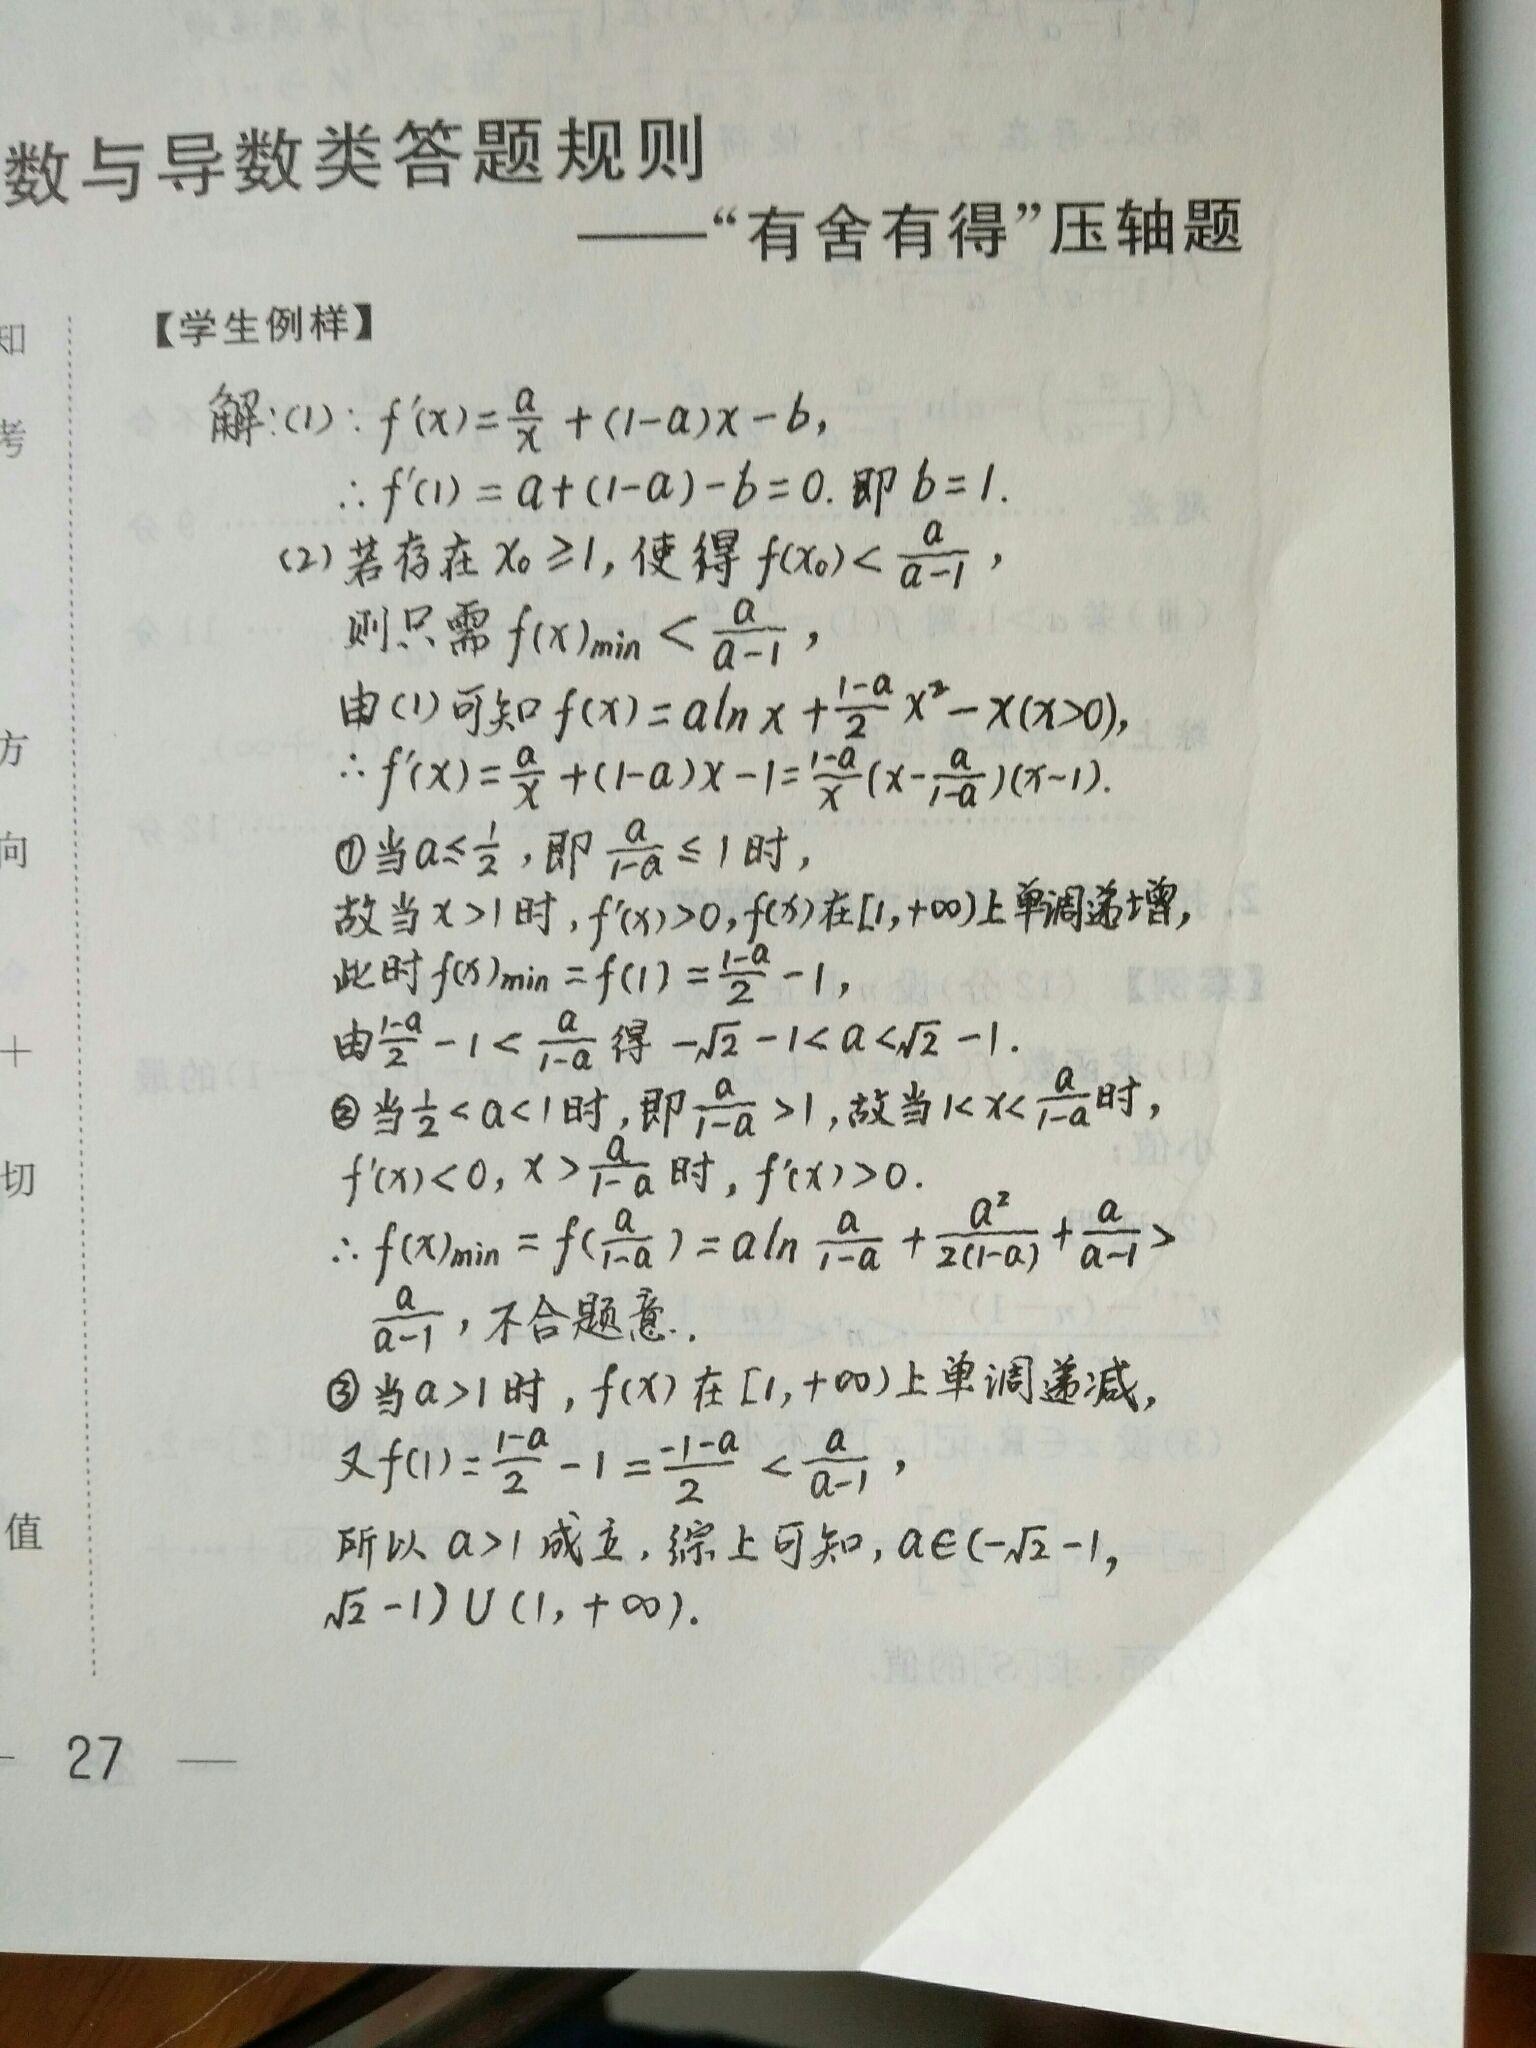 数与导数类答题规则
——“有舍有得”压轴题
【学生例样】
知
考
方
向
+
切
值
解:(1)∵f′(x)=a/x+(1-a)x-b,
∴f′(1)=a+(1-a)-b=0.即b=1.
(2)若存在x₀≥1,使得f(x₀)<a/(a-1),
则只需f(x)min<a/(a-1),
由(1)可知f(x)=alnx+(1-a)/2 x²-x(x>0),
∴f′(x)=a/x+(1-a)x-1=(1-a)/x(x-a/(1-a))(x-1).
①当a≤1/2,即a/(1-a)≤1时,
故当x>1时,f′(x)>0,f(x)在[1,+∞)上单调递增,
此时f(x)min=f(1)=(1-a)/2-1,
由(1-a)/2-1<a/(1-a)得-√2-1<a<√2-1.
②当1/2<a<1时,即a/(1-a)>1,故当1<x<a/(1-a)时,
f′(x)<0,x>a/(1-a)时,f′(x)>0.
∴f(x)min=f(a/(1-a))=aln a/(1-a)+a²/2(1-a)+a/(a-1)>
a/(a-1),不合题意.
③当a>1时,f(x)在[1,+∞)上单调递减,
又f(1)=(1-a)/2-1=(-1-a)/2<a/(a-1),
所以a>1成立.综上可知,a∈(-√2-1,
√2-1)∪(1,+∞).
— 27 —